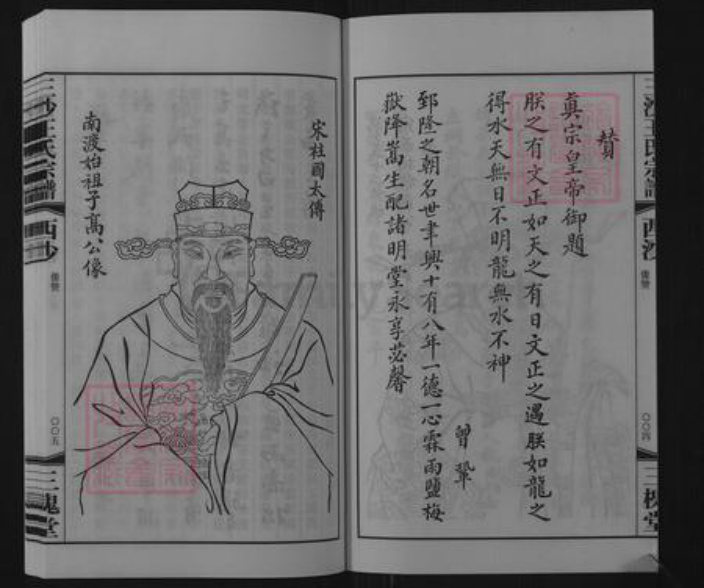 贊
真宗皇帝御題
朕之有文正如天之有日文正之遇朕如龍之
得水天無日不明龍無水不神
曾鞏
郅隆之朝名世聿興十有八年一德一心霖雨鹽梅
嶽降嵩生配諸明堂永享苾馨
三沙王氏宗譜
西沙
像贊
〇〇四
三槐堂
宋柱國太傅
南渡始祖子高公像
三沙王氏宗譜
西沙
像贊
〇〇五
三槐堂